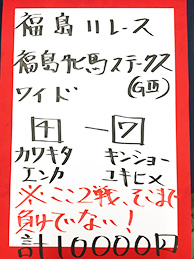 福島11レース
福島牝馬ステークス
ワイド (GⅢ)
4 － 7
カワキタ キンショー
エンカ ユキヒメ
※ここ2戦、そこまで
負けていない!
計10000円